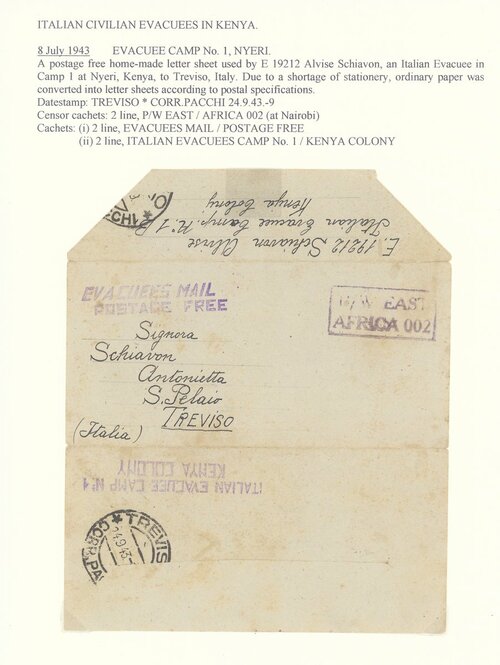 ITALIAN CIVILIAN EVACUEES IN KENYA.
8 July 1943 EVACUEE CAMP No. 1, NYERI.
A postage free home-made letter sheet used by E 19212 Alvise Schiavon, an Italian Evacuee in
Camp 1 at Nyeri, Kenya, to Treviso, Italy. Due to a shortage of stationery, ordinary paper was
converted into letter sheets according to postal specifications.
Datestamp: TREVISO * CORR.PACCHI 24.9.43.-9
Censor cachets: 2 line, P/W EAST / AFRICA 002 (at Nairobi)
Cachets: (i) 2 line, EVACUEES MAIL / POSTAGE FREE
(ii) 2 line, ITALIAN EVACUEES CAMP No. 1 / KENYA COLONY
E. 19212 Schiavon Alvise
Italian Evacuee Camp. N. 1
Kenya Colony
ECHI *
EVACUEES MAIL
POSTAGE FREE
P/W EAST
AFRICA 002
Signora
Schiavon
Antonietta
S. Pelaio
TREVISO
(Italia)
ITALIAN EVACUEE CAMP Nº 1
KENYA COLONY
CORR. PA * TREVIS
24.9.43